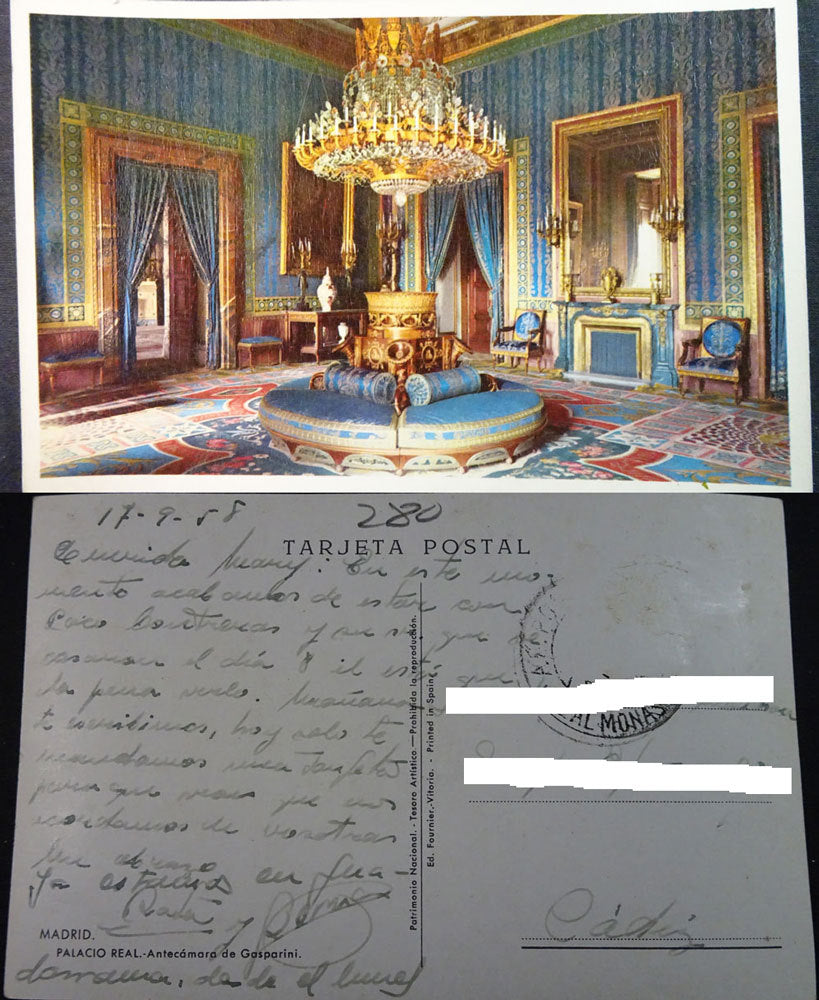 17-9-58
280
TARJETA POSTAL
Querida Mary: En este mo-
mento acabamos de estar con
Paco Contreras y su que se
casaron el día 8 él está que
da pena verlo. Mañana
te escribimos, hoy solo te
mandamos una tarjeta
para que veas que nos
acordamos de vosotras
Un abrazo
Ya estamos en Gua-
y
MADRID.
PALACIO REAL.-Antecámara de Gasparini.
darrama, desde el lunes
Patrimonio Nacional. - Tesoro Artístico.—Prohibida la reproducción.
Ed. Fournier.-Vitoria. - Printed in Spain
AL MONAS
Cádiz